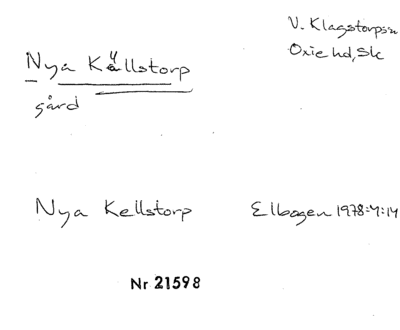 V. Klagstorps sn
Oxie hd, Sk
Nya Källstorp
gård
Nya Kellstorp Elbogen 1978:4:14
Nr 21598